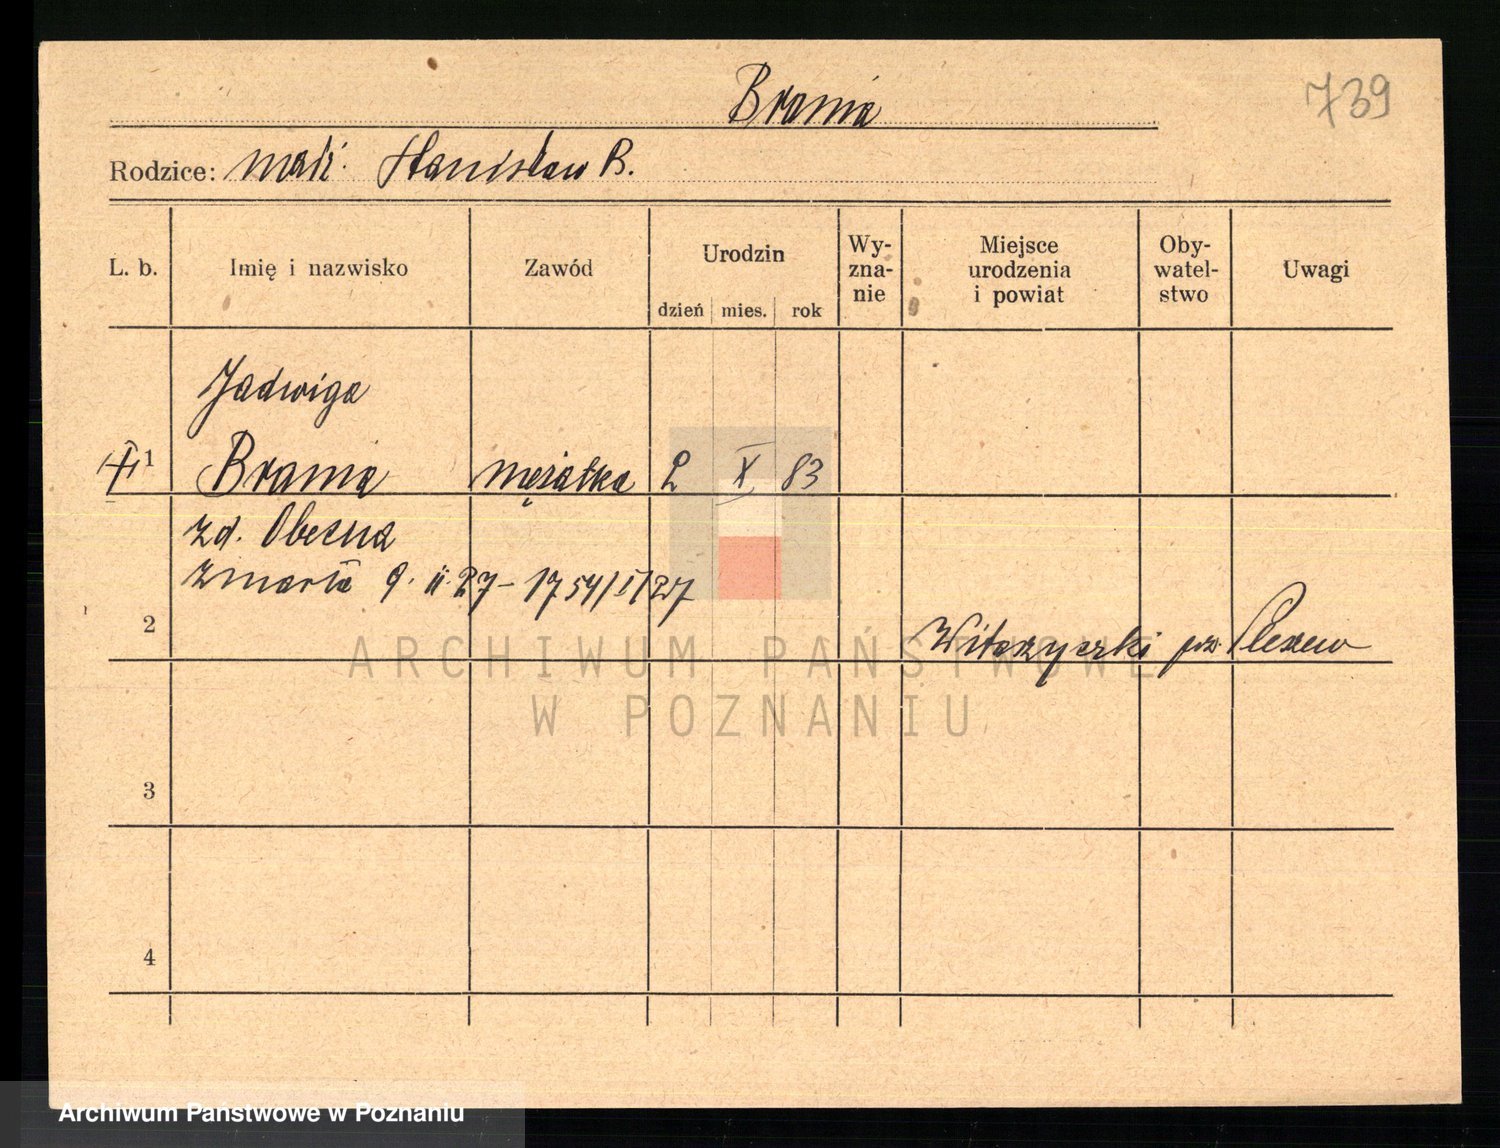 Brania
739
Rodzice: mał: Stanisław B.
L. b. Imię i nazwisko Zawód Urodzin dzień mies. rok Wy-zna-nie Miejsce urodzenia i powiat Oby-watel-stwo Uwagi
Jadwiga
1 Brania mężatka 2 X 83
zd. Obecna
zmarła 9. II. 27 - 1754/I/27
2 Witaszyczki pow. Pleszew
3
4
ARCHIWUM PAŃSTWOWE
W POZNANIU
Archiwum Państwowe w Poznaniu